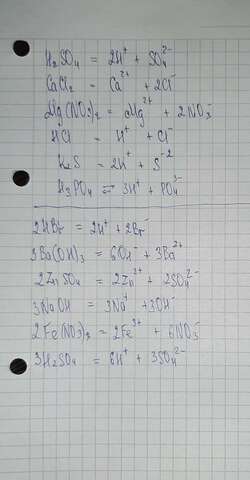 H₂SO₄ = 2H⁺ + SO₄²⁻
CaCl₂ = Ca²⁺ + 2Cl⁻
Mg(NO₃)₂ = Mg²⁺ + 2NO₃⁻
HCl = H⁺ + Cl⁻
H₂S = 2H⁺ + S⁻²
H₃PO₄ = 3H⁺ + PO₄³⁻
2HBr = 2H⁺ + 2Br⁻
3Ba(OH)₃ = 6OH⁻ + 3Ba²⁺
2ZnSO₄ = 2Zn²⁺ + 2SO₄²⁻
3NaOH = 3Na⁺ + 3OH⁻
2Fe(NO₃)₃ = 2Fe³⁺ + 6NO₃⁻
3H₂SO₄ = 6H⁺ + 3SO₄²⁻